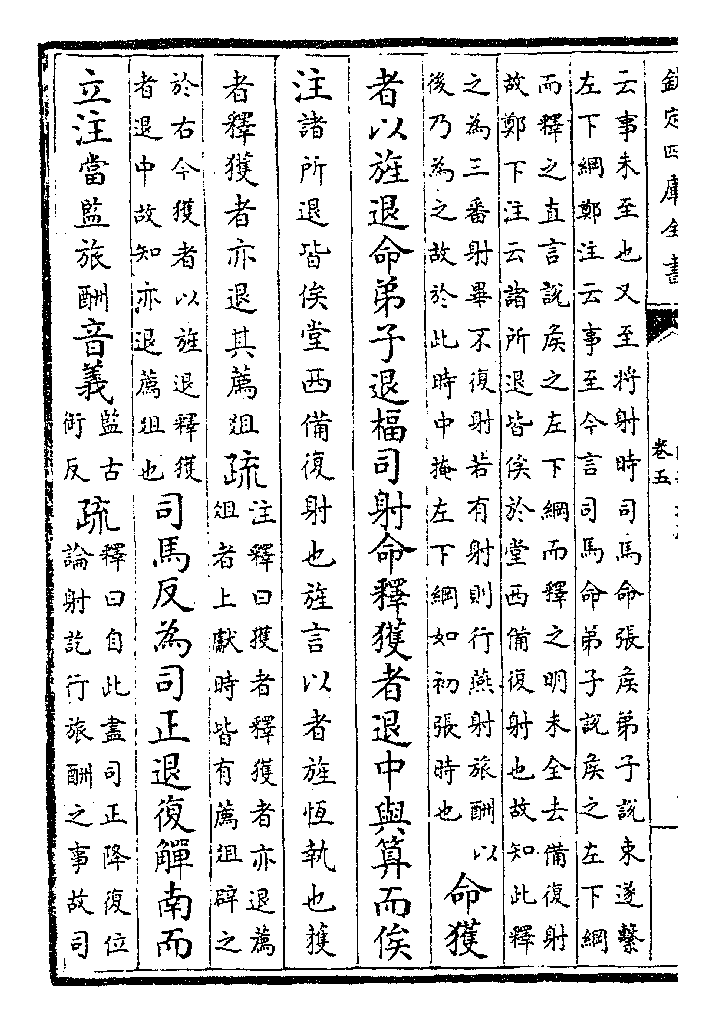 欽定四庫全書
卷五
云事未至也又至將射時司馬命張侯弟子說束遂繫
左下綱鄭注云事至今言司馬命弟子說侯之左下綱
而釋之直言說侯之左下綱而釋之明未全去備復射
故鄭下注云諸所退皆俟於堂西備復射也故知此釋
之為三番射畢不復射若有射則行燕射旅酬以
後乃為之故於此時中掩左下綱如初張時也
命獲
者以旌退命弟子退楅司射命釋獲者退中與算而俟
注諸所退皆俟堂西備復射也旌言以者旌恒執也獲
者釋獲者亦退其薦俎疏
注釋曰獲者釋獲者亦退薦
俎者上獻時皆有薦俎辟之
於右今獲者以旌退釋獲
者退中故知亦退薦俎也
司馬反為司正退復觶南而
立注當監旅酬音義
監古
銜反
疏
釋曰自此盡司正降復位
論射訖行旅酬之事故司